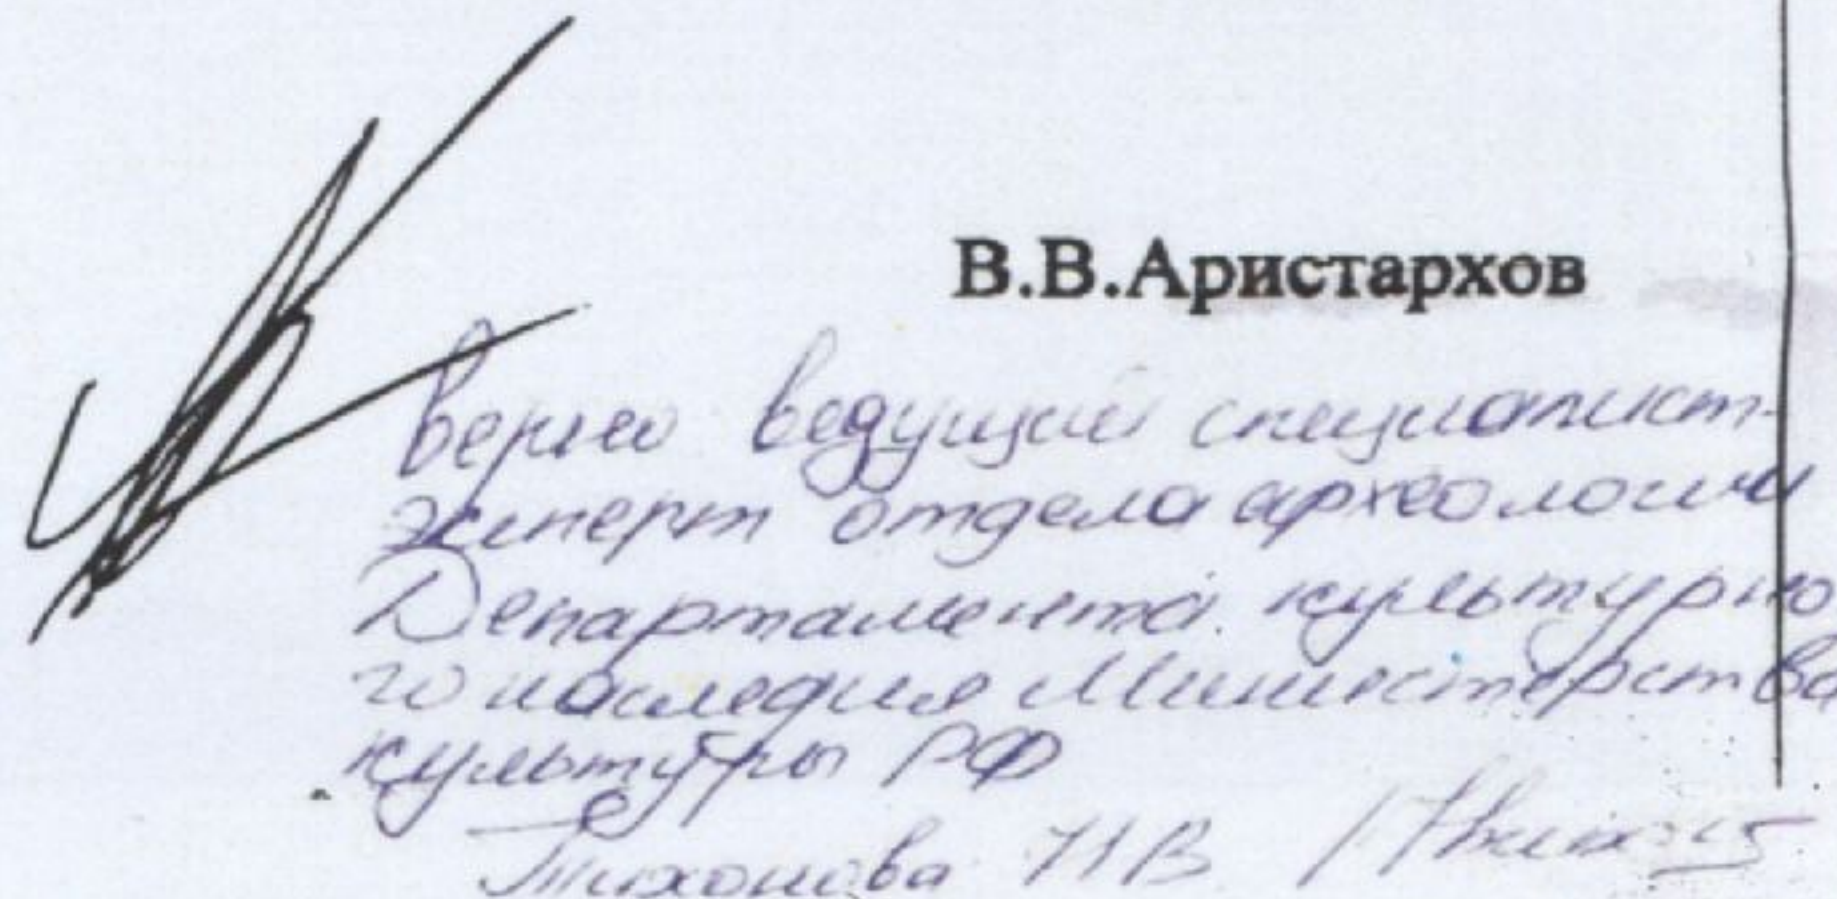 В.В.Аристархов
верно ведущий специалист-
эксперт отдела археологии
Департамента культурно
го наследия Министерства
культуры РФ
Тихонова Н В